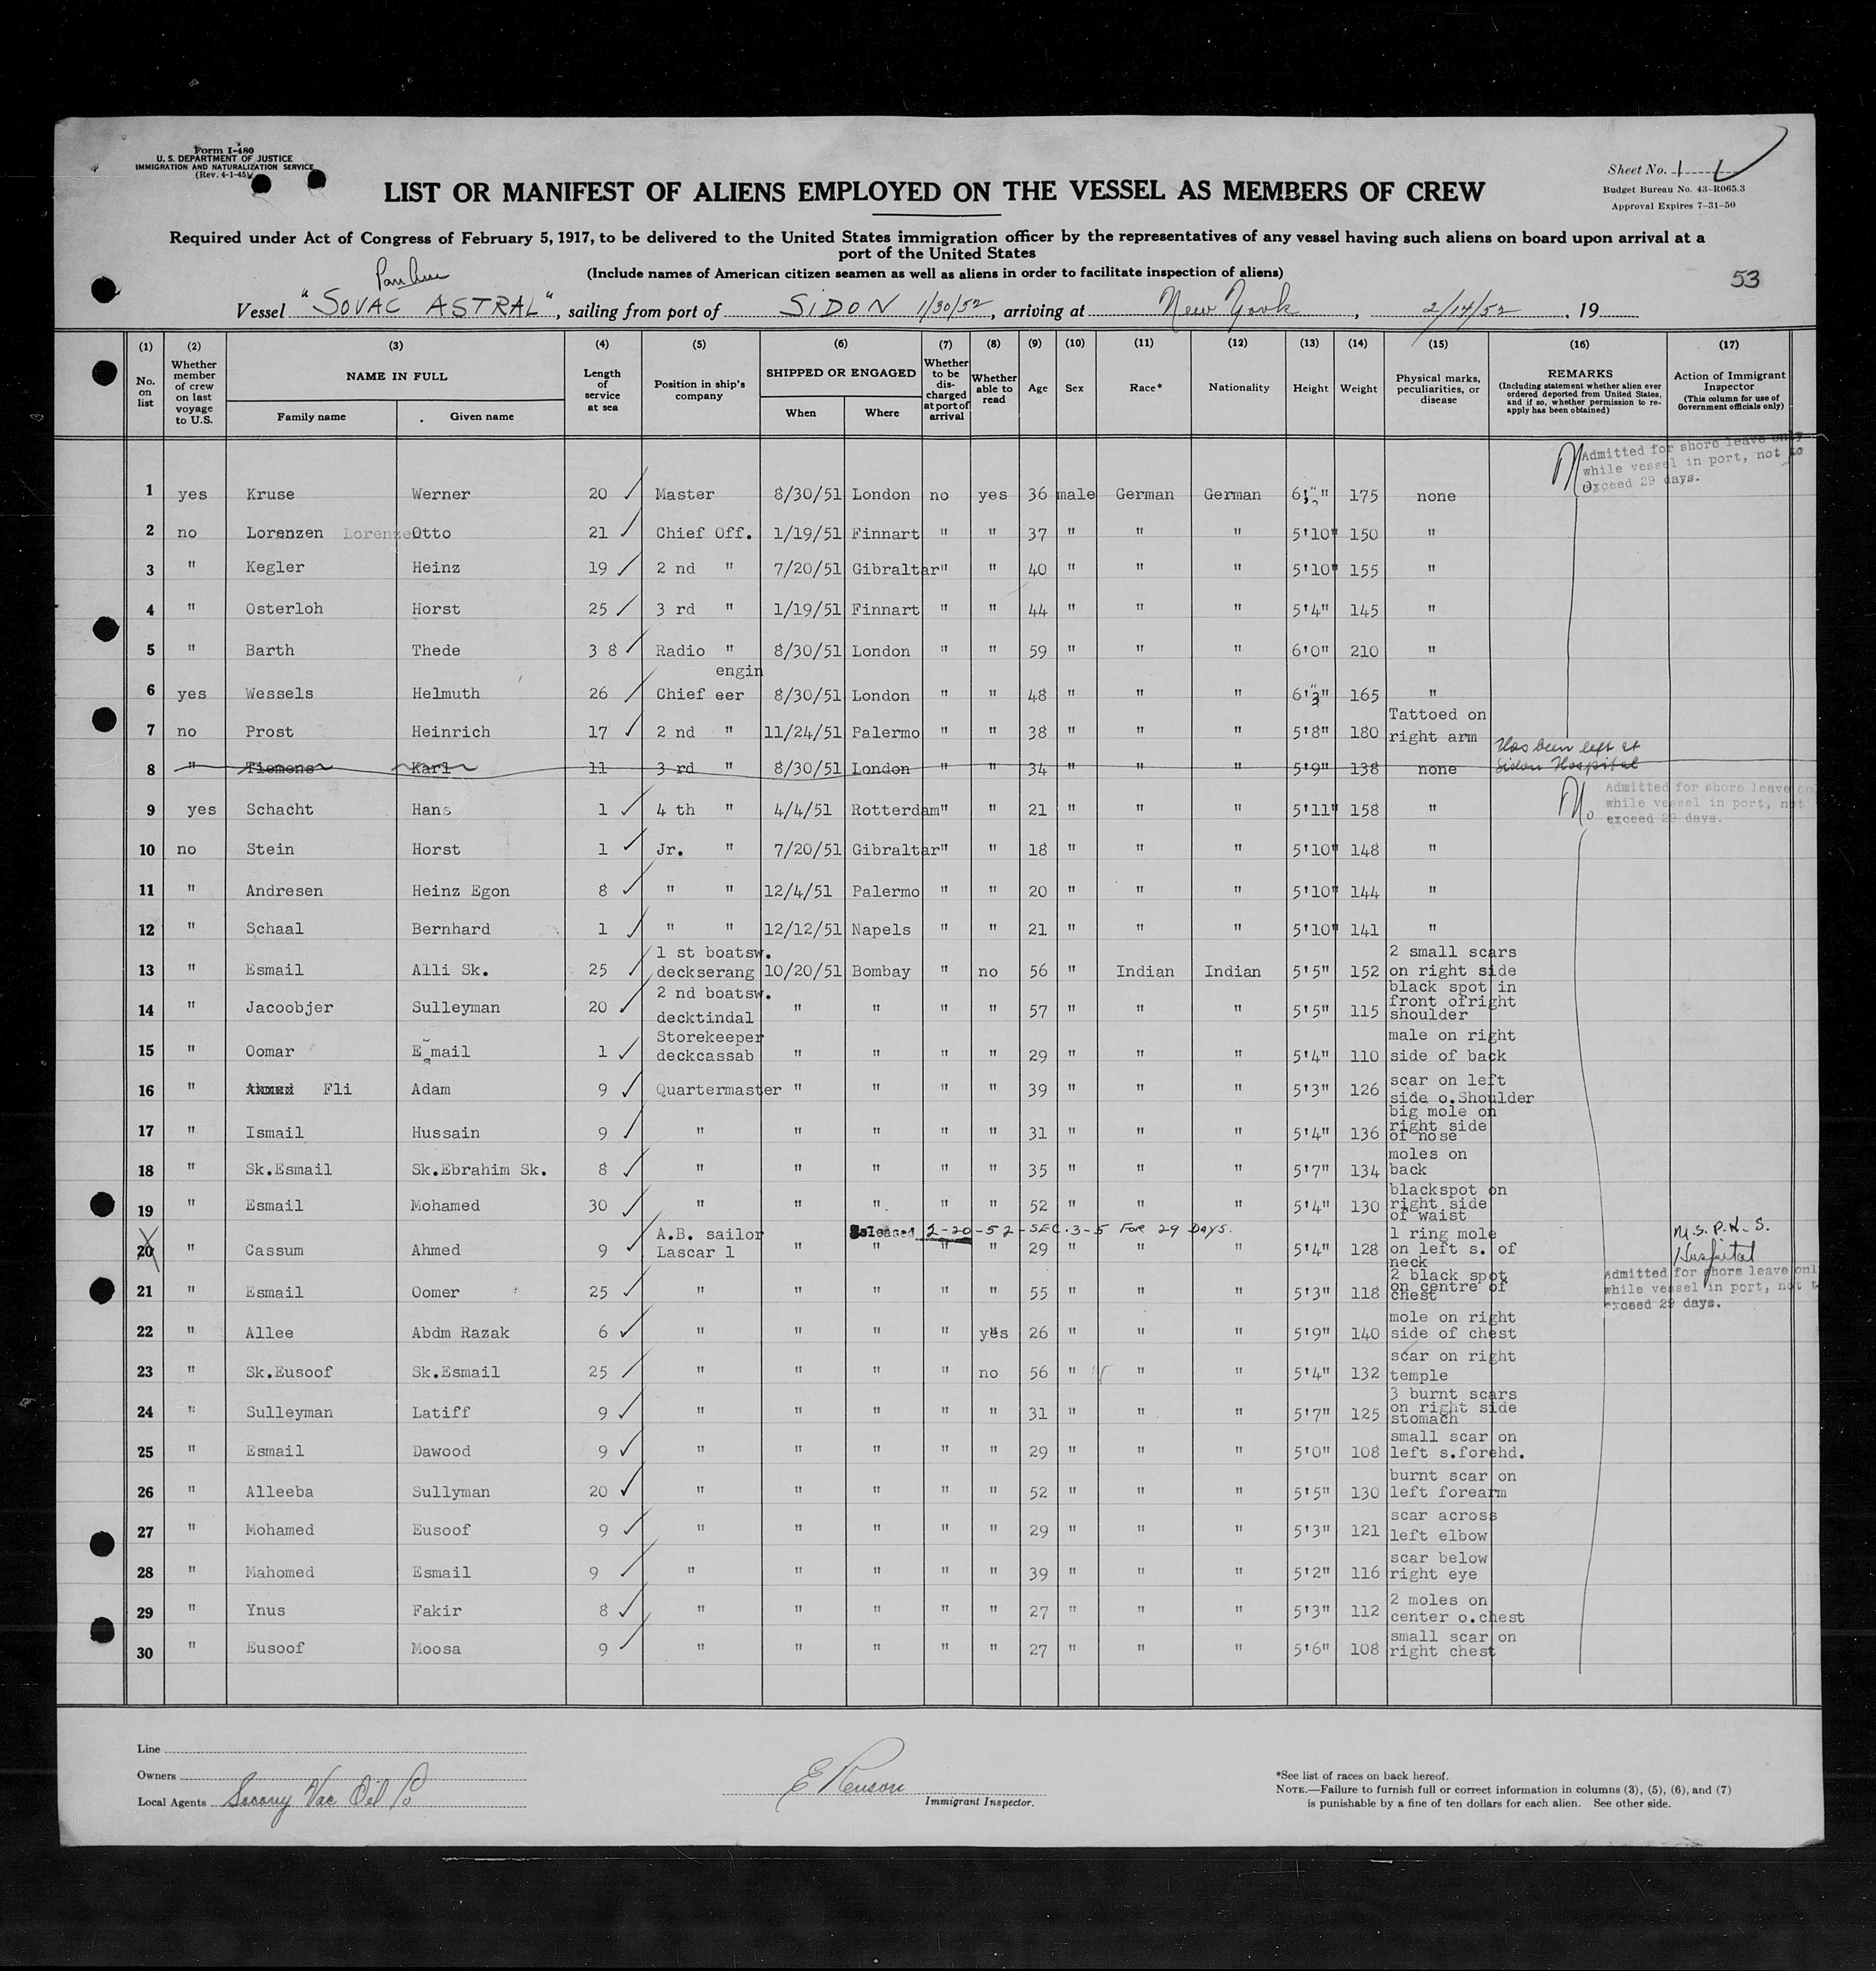 Form I-480
U. S. DEPARTMENT OF JUSTICE
IMMIGRATION AND NATURALIZATION SERVICE
(Rev. 4-1-45)
Sheet No. 1
Budget Bureau No. 43-R065.3
Approval Expires 7-31-50
LIST OR MANIFEST OF ALIENS EMPLOYED ON THE VESSEL AS MEMBERS OF CREW
Required under Act of Congress of February 5, 1917, to be delivered to the United States immigration officer by the representatives of any vessel having such aliens on board upon arrival at a
port of the United States
(Include names of American citizen seamen as well as aliens in order to facilitate inspection of aliens)
53
Vessel "SOVAC ASTRAL", sailing from port of SIDON 1/30/52, arriving at New York, 2/14/52, 19
(1) No. on list
(2) Whether member of crew on last voyage to U.S.
(3) NAME IN FULL Family name Given name
(4) Length of service at sea
(5) Position in ship's company
(6) SHIPPED OR ENGAGED When Where
(7) Whether to be discharged at port of arrival
(8) Whether able to read
(9) Age
(10) Sex
(11) Race*
(12) Nationality
(13) Height
(14) Weight
(15) Physical marks, peculiarities, or disease
(16) REMARKS (Including statement whether alien ever ordered deported from United States, and if so, whether permission to reapply has been obtained)
(17) Action of Immigrant Inspector (This column for use of Government officials only)
Admitted for shore leave only
while vessel in port, not to
exceed 29 days.
1 yes Kruse Werner 20 Master 8/30/51 London no yes 36 male German German 175 none
2 no Lorenzen Lorenze Otto 21 Chief Off. 1/19/51 Finnart " " 37 " " " 5'10" 150 "
3 " Kegler Heinz 19 2 nd " 7/20/51 Gibraltar " " 40 " " " 5'10" 155 "
4 " Osterloh Horst 25 3 rd " 1/19/51 Finnart " " 44 " " " 5'4" 145 "
5 " Barth Thede 3 8 Radio " 8/30/51 London " " 59 " " " 6'0" 210 "
6 yes Wessels Helmuth 26 Chief engineer 8/30/51 London " " 48 " " " 6'3" 165 "
7 no Prost Heinrich 17 2 nd " 11/24/51 Palermo " " 38 " " " 5'8" 180 Tattoed on right arm
8 " Tiemens Karl 11 3 rd " 8/30/51 London " " 34 " " " 5'9" 138 none Has been left at Sidon Hospital
Admitted for shore leave on
while vessel in port, not
exceed 29 days.
9 yes Schacht Hans 1 4 th " 4/4/51 Rotterdam " " 21 " " " 5'11" 158 "
10 no Stein Horst 1 Jr. " 7/20/51 Gibraltar " " 18 " " " 5'10" 148 "
11 " Andresen Heinz Egon 8 " " 12/4/51 Palermo " " 20 " " " 5'10" 144 "
12 " Schaal Bernhard 1 " " 12/12/51 Napels " " 21 " " " 5'10" 141 "
13 " Esmail Alli Sk. 25 1 st boatsw. deckserang 10/20/51 Bombay " no 56 " Indian Indian 5'5" 152 2 small scars on right side
14 " Jacoobjer Sulleyman 20 2 nd boatsw. decktindal " " " " 57 " " " 5'5" 115 black spot in front ofright shoulder
15 " Oomar Esmail 1 Storekeeper deckcassab " " " " 29 " " " 5'4" 110 male on right side of back
16 " Ahmed Fli Adam 9 Quartermaster " " " " 39 " " " 5'3" 126 scar on left side o.Shoulder
17 " Ismail Hussain 9 " " " " " 31 " " " 5'4" 136 big mole on right side of nose
18 " Sk.Esmail Sk.Ebrahim Sk. 8 " " " " " 35 " " " 5'7" 134 moles on back
19 " Esmail Mohamed 30 " " " " " 52 " " " 5'4" 130 blackspot on right side of waist
Released 2-20-52-SEC.3-5 FOR 29 DAYS.
20 " Cassum Ahmed 9 A.B. sailor Lascar 1 " " " " 29 " " " 5'4" 128 1 ring mole on left s. of neck M.S.P.H.S. Hospital
Admitted for shore leave onl
while vessel in port, not t
exceed 29 days.
21 " Esmail Oomer 25 " " " " " 55 " " " 5'3" 118 2 black spot on centre of chest
22 " Allee Abdm Razak 6 " " " " yes 26 " " " 5'9" 140 mole on right side of chest
23 " Sk.Eusoof Sk.Esmail 25 " " " " no 56 " " " 5'4" 132 scar on right temple
24 " Sulleyman Latiff 9 " " " " " 31 " " " 5'7" 125 3 burnt scars on right side stomach
25 " Esmail Dawood 9 " " " " " 29 " " " 5'0" 108 small scar on left s.forehd.
26 " Alleeba Sullyman 20 " " " " " 52 " " " 5'5" 130 burnt scar on left forearm
27 " Mohamed Eusoof 9 " " " " " 29 " " " 5'3" 121 scar across left elbow
28 " Mahomed Esmail 9 " " " " " 39 " " " 5'2" 116 scar below right eye
29 " Ynus Fakir 8 " " " " " 27 " " " 5'3" 112 2 moles on center o.chest
30 " Eusoof Moosa 9 " " " " " 27 " " " 5'6" 108 small scar on right chest
Line
Owners
Local Agents Socony Vac Oil Co
Immigrant Inspector.
*See list of races on back hereof.
NOTE.—Failure to furnish full or correct information in columns (3), (5), (6), and (7)
is punishable by a fine of ten dollars for each alien. See other side.